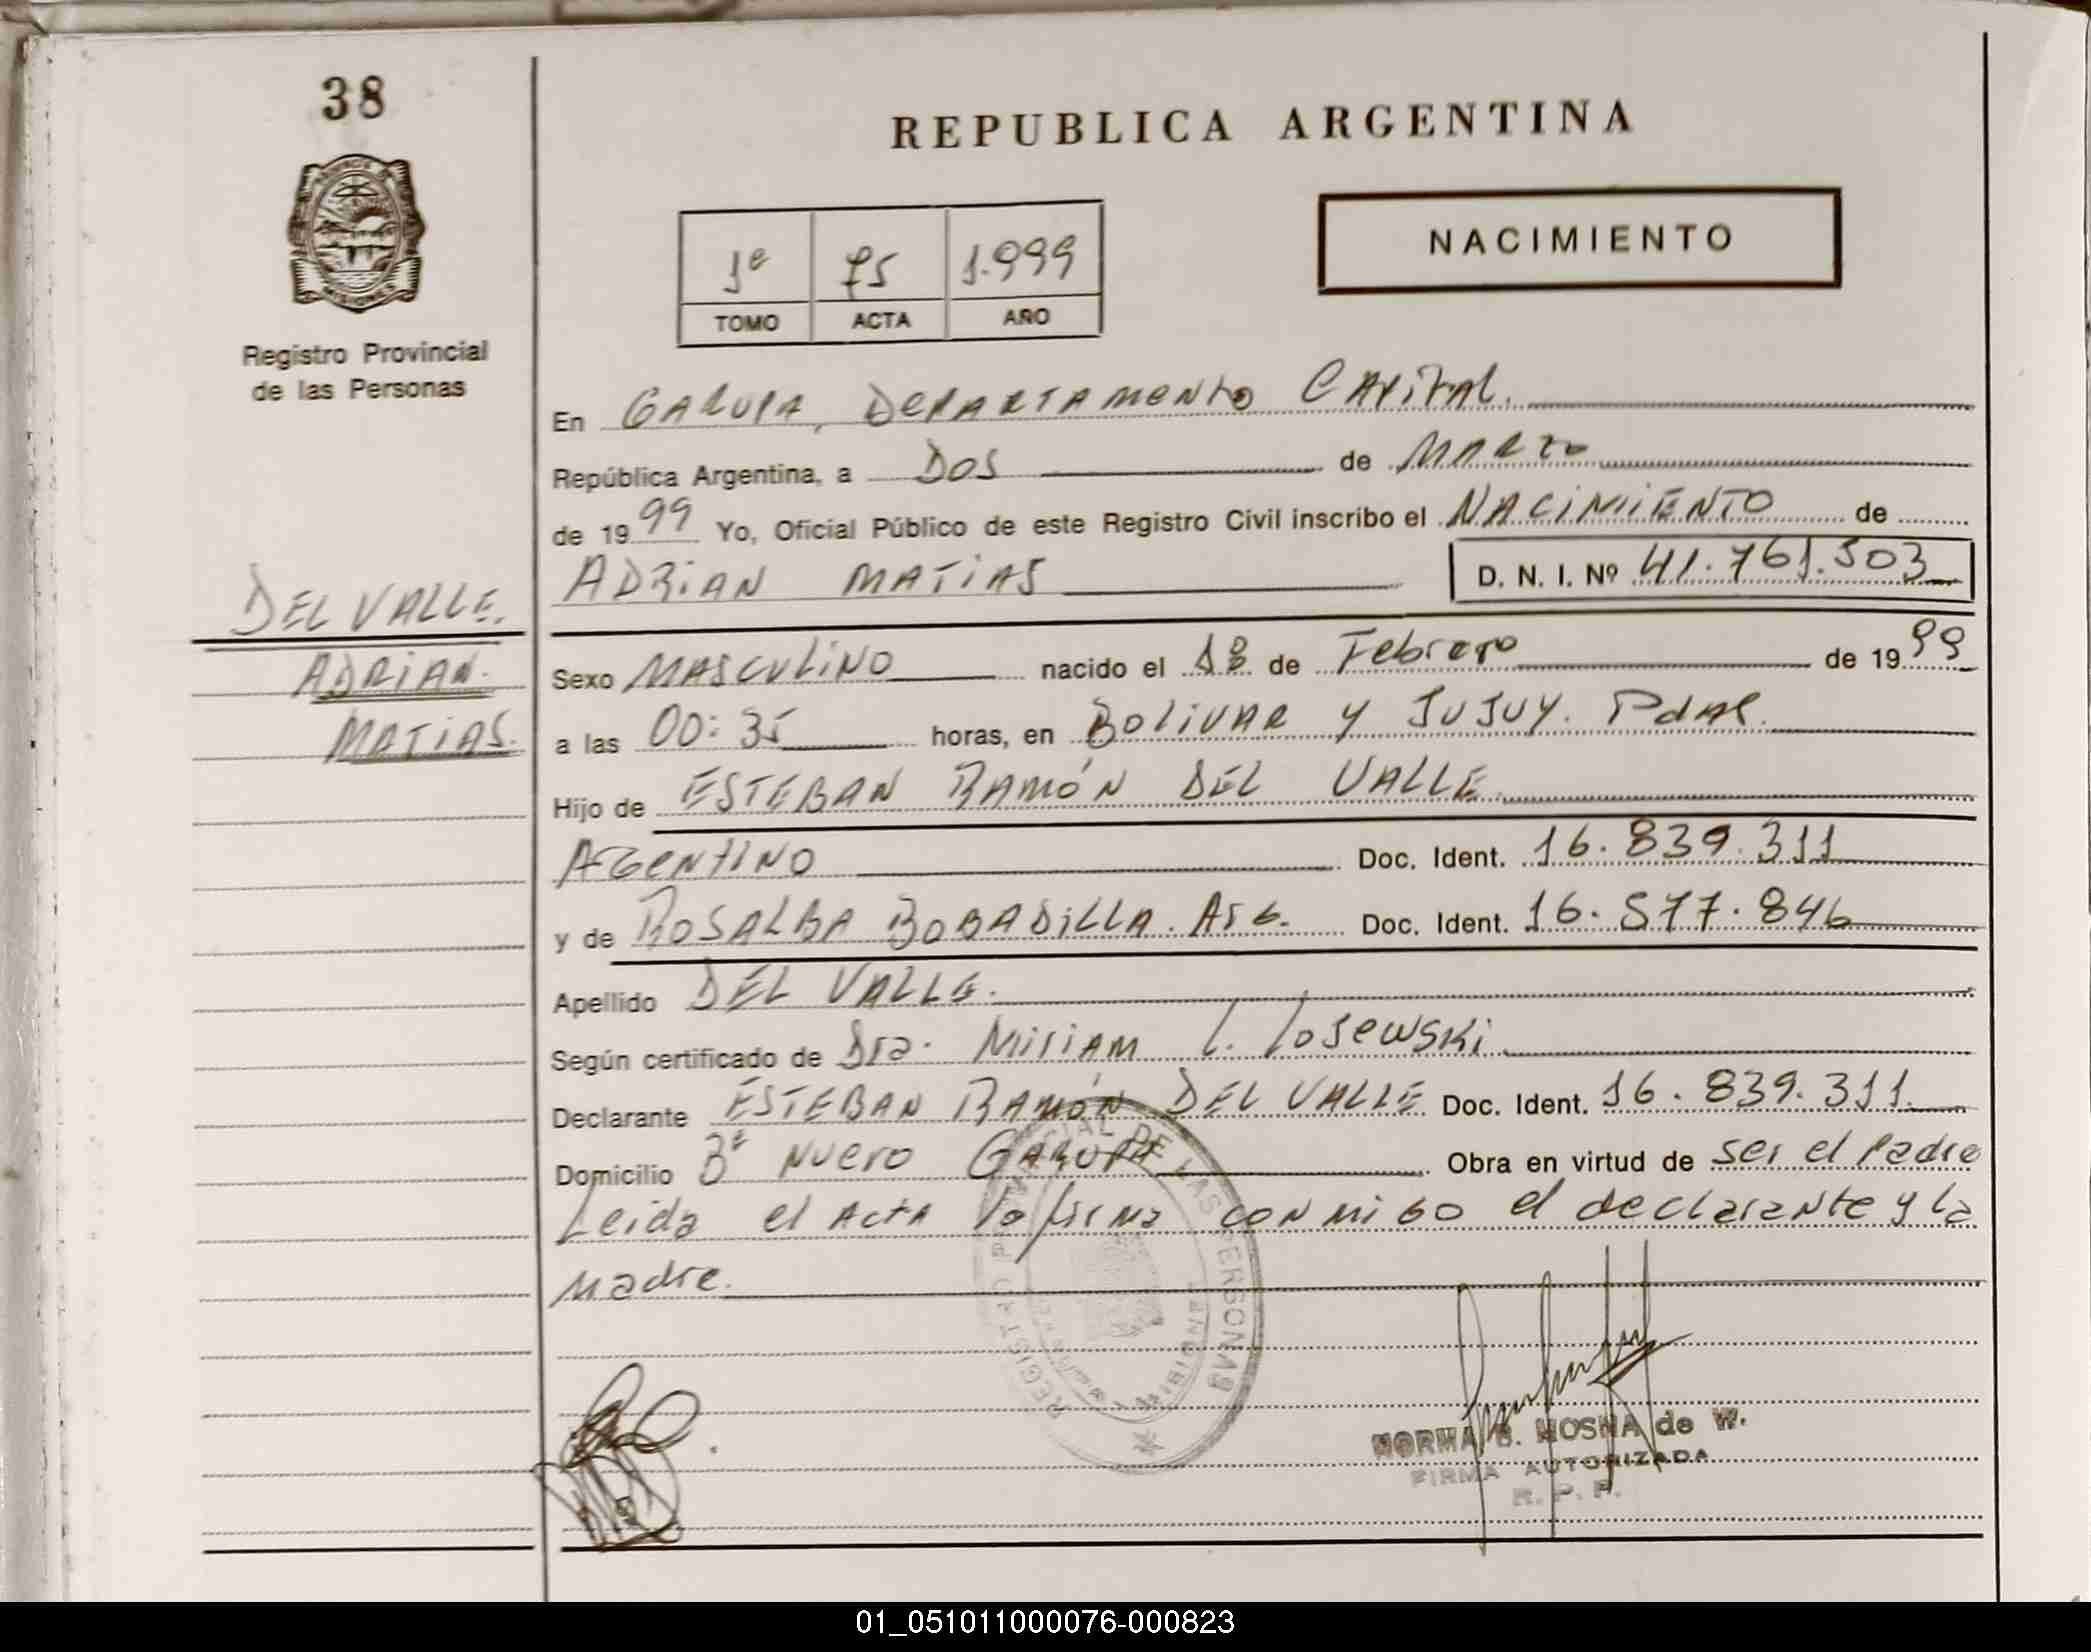 38
REPUBLICA ARGENTINA
NACIMIENTO
1º 75 1.999
TOMO ACTA AÑO
MISIONES
Registro Provincial
de las Personas
En GARUPA, DEPARTAMENTO CAPITAL.
República Argentina, a DOS de MARZO
de 1999 Yo, Oficial Público de este Registro Civil inscribo el NACIMIENTO de
ADRIAN MATIAS D. N. I. Nº 41.761.503
DEL VALLE.
ADRIAN.
MATIAS.
Sexo MASCULINO nacido el 18 de Febrero de 1999
a las 00:35 horas, en BOLIVAR Y JUJUY. Pdas.
Hijo de ESTEBAN RAMÓN DEL VALLE
ARGENTINO Doc. Ident. 16.839.311
y de ROSALBA BOBADILLA. Arg. Doc. Ident. 16.577.846
Apellido DEL VALLE.
Según certificado de Dra. Miriam L. Losewski
Declarante ESTEBAN RAMÓN DEL VALLE Doc. Ident. 16.839.311.
Domicilio Bº Nuevo GARUPA Obra en virtud de ser el Padre
Leida el Acta la firma conmigo el declarante y la
Madre.
DE LAS PERSONAS
NORMA B. MOSNA de W.
FIRMA AUTORIZADA
R. P. P.
01_051011000076-000823